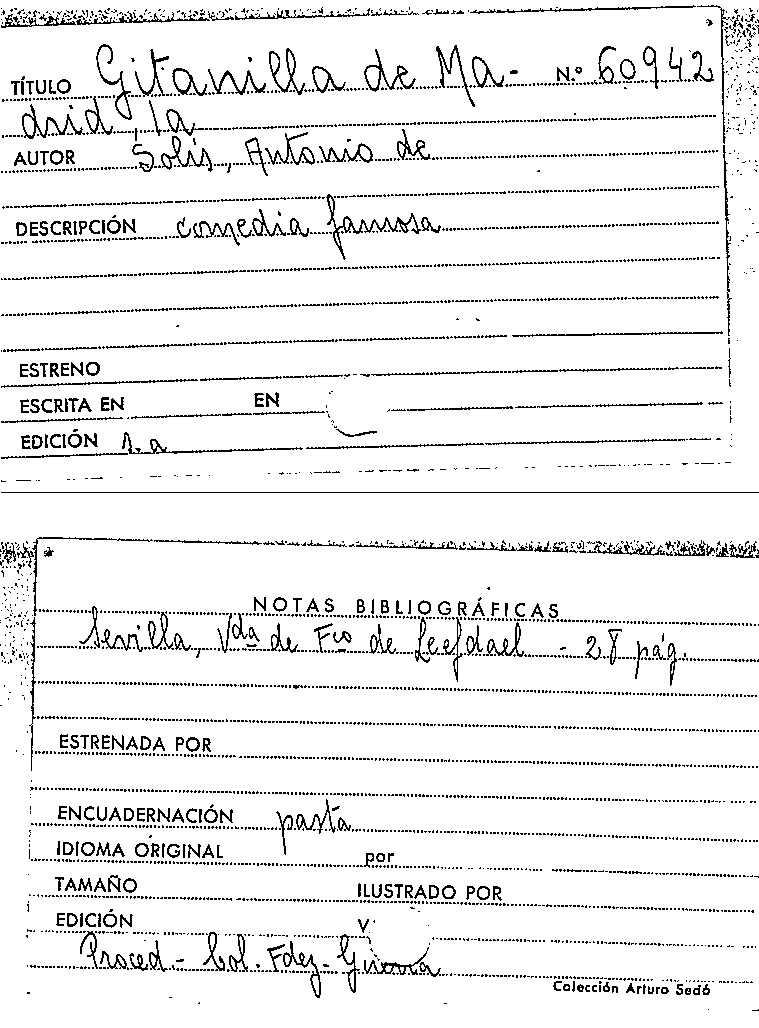 TÍTULO Gitanilla de Ma- N.º 60942
drid, la
AUTOR Solís, Antonio de
DESCRIPCIÓN comedia famosa
ESTRENO
ESCRITA EN EN
EDICIÓN 1.a
NOTAS BIBLIOGRÁFICAS
Sevilla, Vda de Fco de Leefdael - 28 pág.
ESTRENADA POR
ENCUADERNACIÓN pasta
IDIOMA ORIGINAL por
TAMAÑO ILUSTRADO POR
EDICIÓN V.
Proced.- Col. Fdez-Guerra
Colección Arturo Sedó